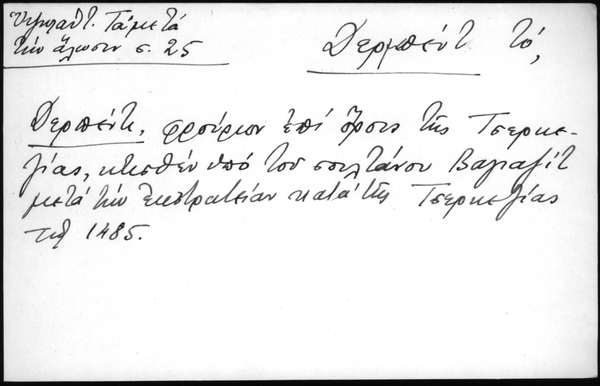 Ὑψηλάντ. Τὰ μετὰ
τὴν ἅλωσιν σ. 25
Δερμπέντ τό,
Δερπέντ, φρούριον ἐπὶ ὄρους τῆς Τσερκε-
ζίας, κτισθὲν ὑπὸ τοῦ σουλτάνου Βαγιαζίτ
μετὰ τὴν ἐκστρατείαν κατὰ τῆς Τσερκεζίας
τῷ 1485.